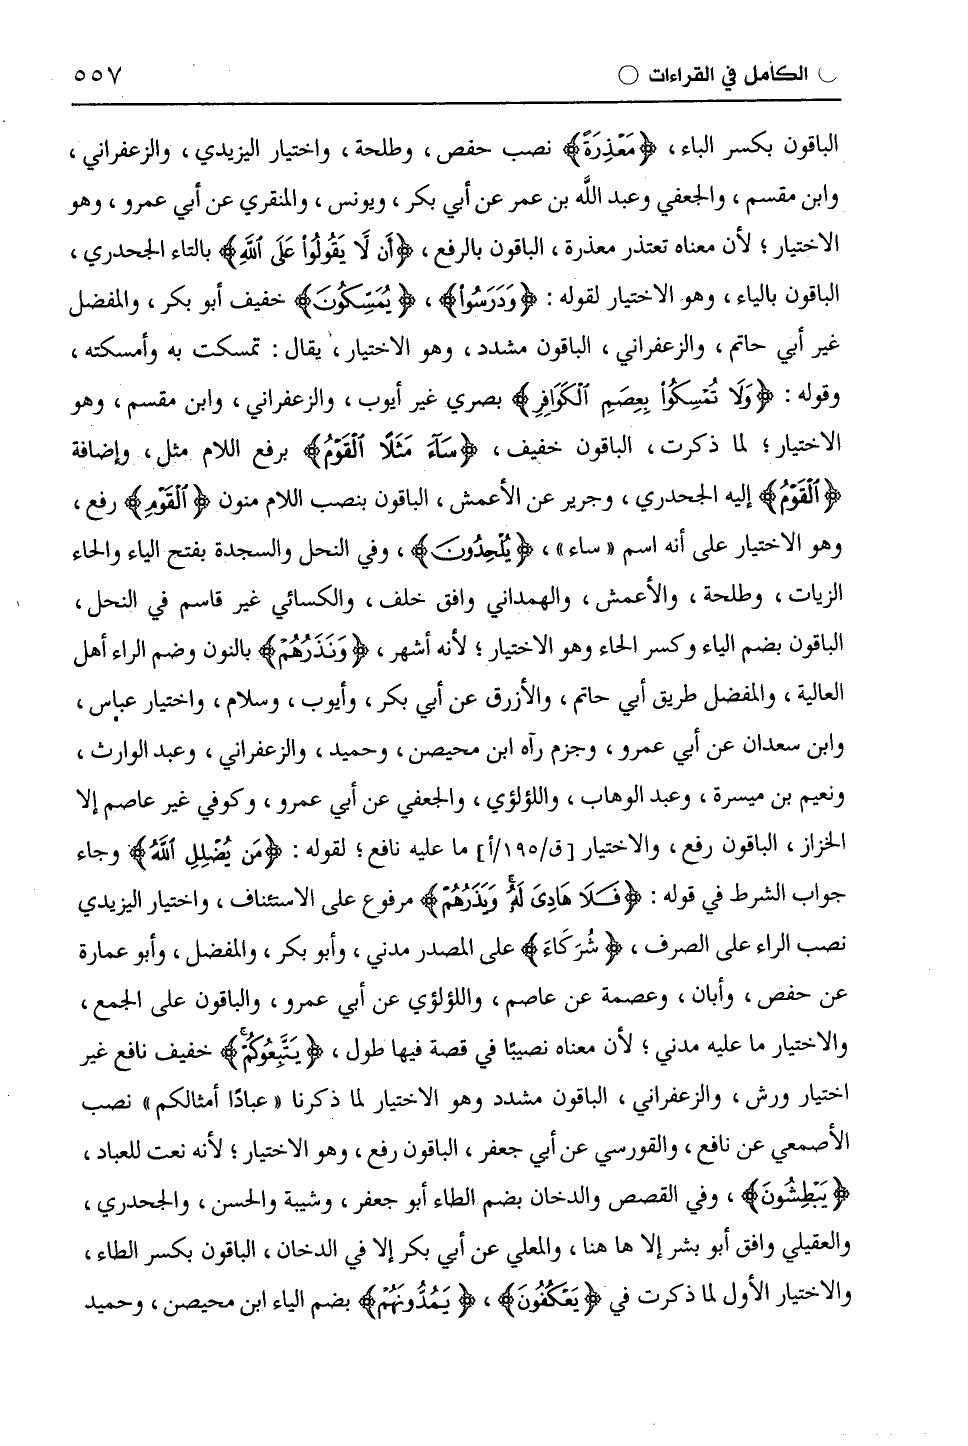 الكامل في القراءات ٥٥٧
الباقون بكسر الباء، ﴿مَعْذِرَةً﴾ نصب حفص، وطلحة، واختيار اليزيدي، والزعفراني،
وابن مقسم، والجعفي وعبد اللَّه بن عمر عن أبي بكر، ويونس، والمنقري عن أبي عمرو، وهو
الاختيار؛ لأن معناه تعتذر معذرة، الباقون بالرفع، ﴿أَن لَّا يَقُولُواْ عَلَى ٱللَّهِ﴾ بالتاء الجحدري،
الباقون بالياء، وهو الاختيار لقوله: ﴿وَدَرَسُواْ﴾، ﴿يُمَسِّكُونَ﴾ خفيف أبو بكر، والمفضل
غير أبي حاتم، والزعفراني، الباقون مشدد، وهو الاختيار، يقال: تمسكت به وأمسكته،
وقوله: ﴿وَلَا تُمْسِكُواْ بِعِصَمِ ٱلْكَوَافِرِ﴾ بصري غير أيوب، والزعفراني، وابن مقسم، وهو
الاختيار؛ لما ذكرت، الباقون خفيف، ﴿سَآءَ مَثَلًا ٱلْقَوْمُ﴾ برفع اللام مثل، وإضافة
﴿ٱلْقَوْمُ﴾ إليه الجحدري، وجرير عن الأعمش، الباقون بنصب اللام منون ﴿ٱلْقَوْمِ﴾ رفع،
وهو الاختيار على أنه اسم «ساء»، ﴿يُلْحِدُونَ﴾، وفي النحل والسجدة بفتح الياء والحاء
الزيات، وطلحة، والأعمش، والهمداني وافق خلف، والكسائي غير قاسم في النحل،
الباقون بضم الياء وكسر الحاء وهو الاختيار؛ لأنه أشهر، ﴿وَنَذَرُهُمْ﴾ بالنون وضم الراء أهل
العالية، والمفضل طريق أبي حاتم، والأزرق عن أبي بكر، وأيوب، وسلام، واختيار عباس،
وابن سعدان عن أبي عمرو، وجزم رآه ابن محيصن، وحميد، والزعفراني، وعبد الوارث،
ونعيم بن ميسرة، وعبد الوهاب، واللؤلؤي، والجعفي عن أبي عمرو، وكوفي غير عاصم إلا
الخزاز، الباقون رفع، والاختيار [ق/١٩٥/أ] ما عليه نافع؛ لقوله: ﴿مَن يُضْلِلِ ٱللَّهُ﴾ وجاء
جواب الشرط في قوله: ﴿فَلَا هَادِيَ لَهُۥۚ وَيَذَرُهُمْ﴾ مرفوع على الاستئناف، واختيار اليزيدي
نصب الراء على الصرف، ﴿شُرَكَآءَ﴾ على المصدر مدني، وأبو بكر، والمفضل، وأبو عمارة
عن حفص، وأبان، وعصمة عن عاصم، واللؤلؤي عن أبي عمرو، والباقون على الجمع،
والاختيار ما عليه مدني؛ لأن معناه نصيبًا في قصة فيها طول، ﴿يَتَّبِعُوكُمْۚ﴾ خفيف نافع غير
اختيار ورش، والزعفراني، الباقون مشدد وهو الاختيار لما ذكرنا «عبادًا أمثالكم» نصب
الأصمعي عن نافع، والقورسي عن أبي جعفر، الباقون رفع، وهو الاختيار؛ لأنه نعت للعباد،
﴿يَبْطِشُونَ﴾، وفي القصص والدخان بضم الطاء أبو جعفر، وشيبة والحسن، والجحدري،
والعقيلي وافق أبو بشر إلا ها هنا، والمعلي عن أبي بكر إلا في الدخان، الباقون بكسر الطاء،
والاختيار الأول لما ذكرت في ﴿يَعْكُفُونَ﴾، ﴿يَمُدُّونَهُمْ﴾ بضم الياء ابن محيصن، وحميد